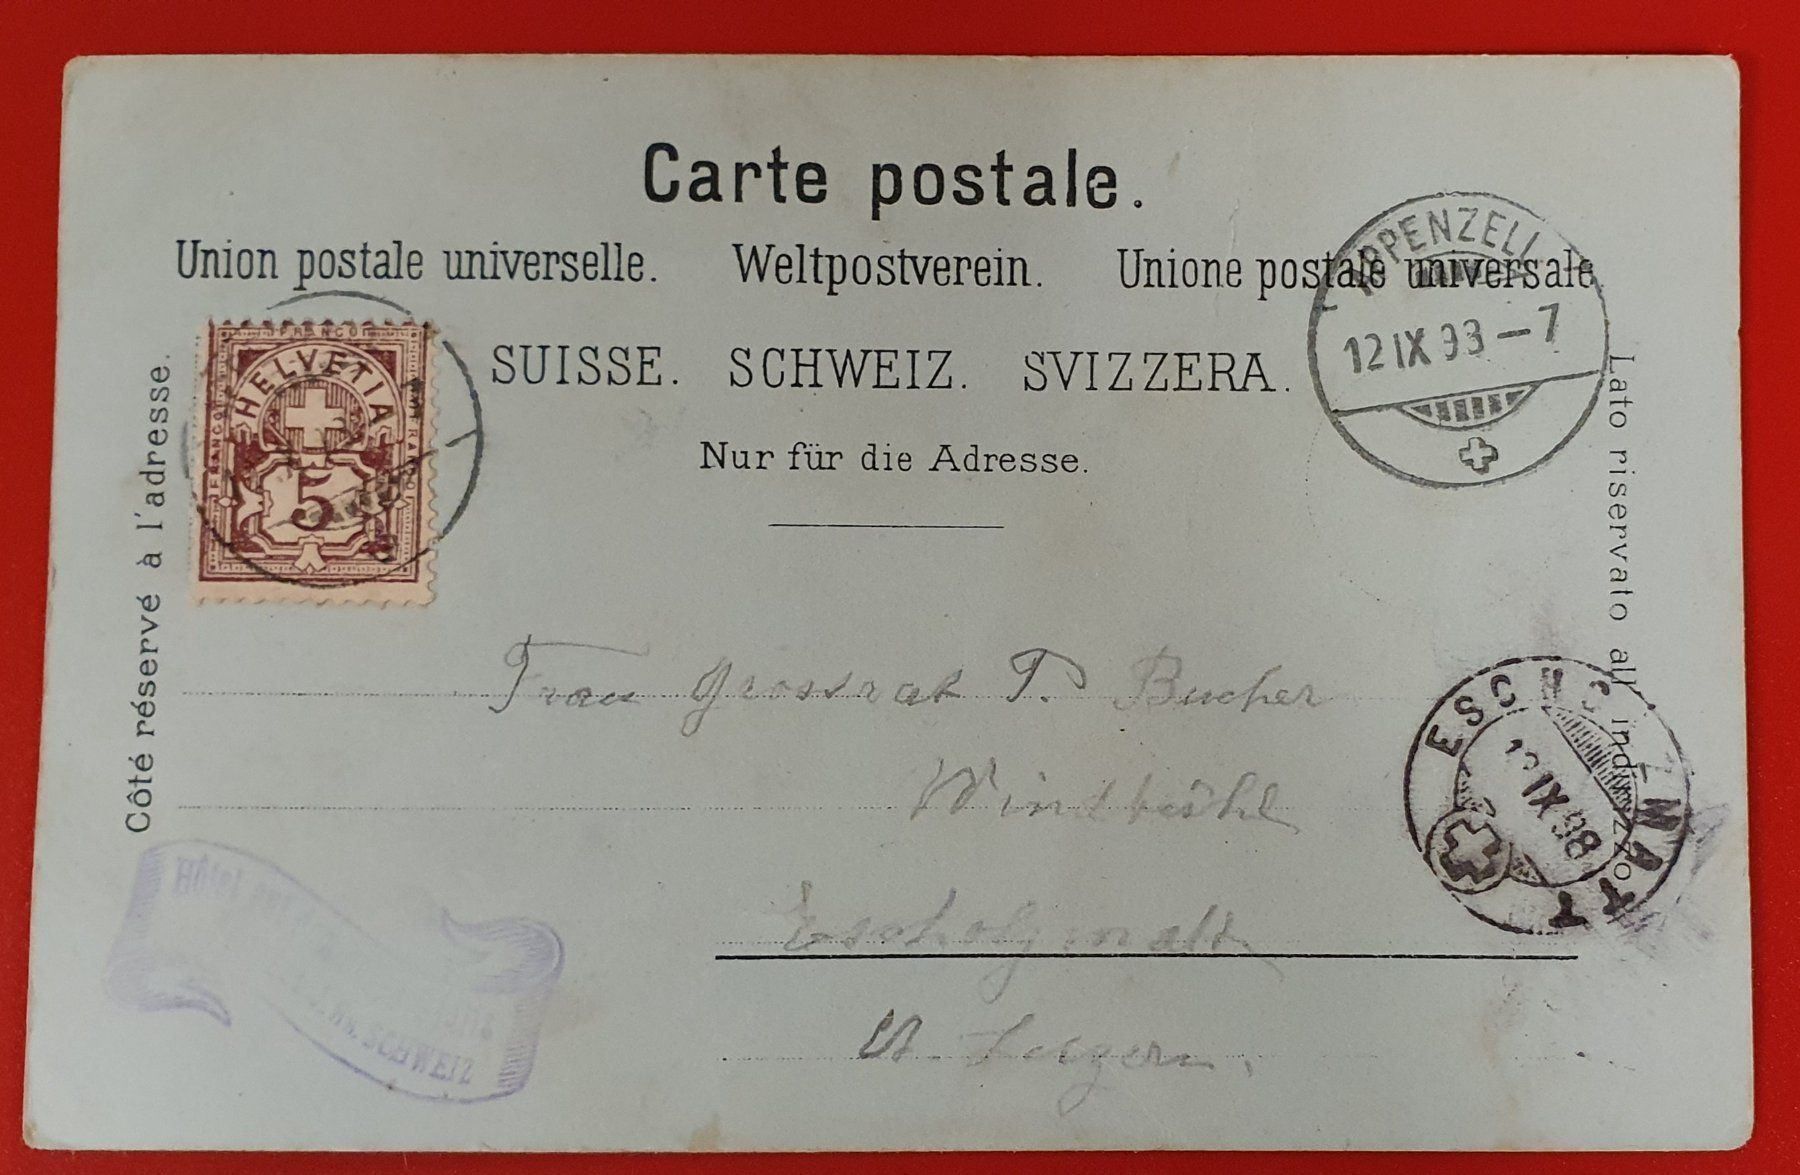 Carte postale.
Union postale universelle. Weltpostverein. Unione postale universale.
SUISSE. SCHWEIZ. SVIZZERA.
Nur für die Adresse.
Côté réservé à l'adresse.
Lato riservato all' indirizzo
FRANCO
FRANCO
HELVETIA
5
APPENZELL
12 IX 98 — 7
Frau Grossrat T. Bucher
Windbühl
Escholzmatt
Kt. Luzern.
ESCHOLZMATT
IX 98
Hôtel
SCHWEIZ